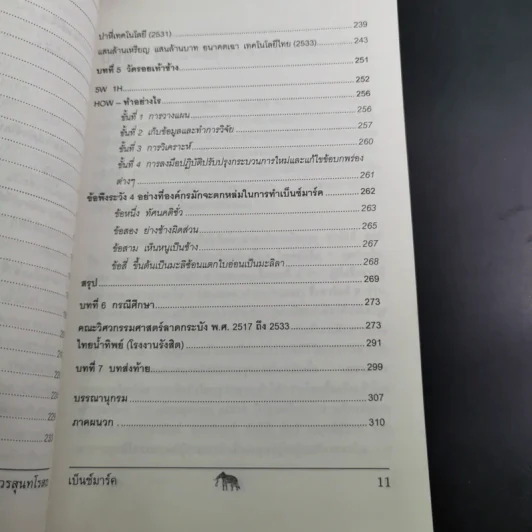 ปาที่เทคโนโลยี (2531) 239
แสนล้านเหรียญ แสนล้านบาท อนาคตเฉา เทคโนโลยีไทย (2533) 243
บทที่ 5 วัดรอยเท้าช้าง 251
5W 1H 252
HOW – ทำอย่างไร 256
ขั้นที่ 1 การวางแผน 256
ขั้นที่ 2 เก็บข้อมูลและทำการวิจัย 257
ขั้นที่ 3 การวิเคราะห์ 260
ขั้นที่ 4 การลงมือปฏิบัติปรับปรุงกระบวนการใหม่และแก้ไขข้อบกพร่อง
ต่างๆ 261
ข้อพึงระวัง 4 อย่างที่องค์กรมักจะตกหล่มในการทำเบ็นช์มาร์ค 262
ข้อหนึ่ง ทัศนคติชั่ว 263
ข้อสอง ย่างช้างผิดส่วน 265
ข้อสาม เห็นหนูเป็นช้าง 267
ข้อสี่ ขึ้นต้นเป็นมะลิซ้อนแตกใบอ่อนเป็นมะลิลา 268
สรุป 269
บทที่ 6 กรณีศึกษา 273
คณะวิศวกรรมศาสตร์ลาดกระบัง พ.ศ. 2517 ถึง 2533 273
ไทยน้ำทิพย์ (โรงงานรังสิต) 291
บทที่ 7 บทส่งท้าย 299
บรรณานุกรม 307
ภาคผนวก 310
วรสุนทโรสถ
เบ็นช์มาร์ค 11